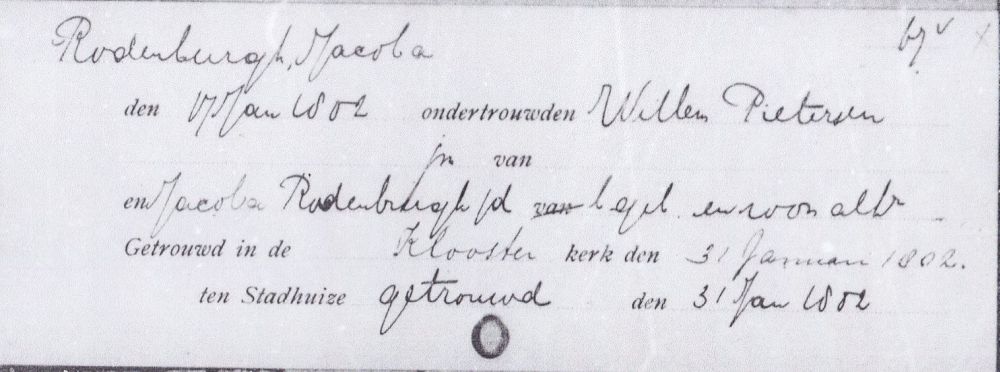 Rodenburgh, Jacoba
den 17 Jan 1802 ondertrouwden Willem Pietersen
jm van
en Jacoba Rodenburgh jd van b geb. en woon alhr
Getrouwd in de Klooster kerk den 31 Januari 1802.
ten Stadhuize getrouwd den 31 Jan 1802